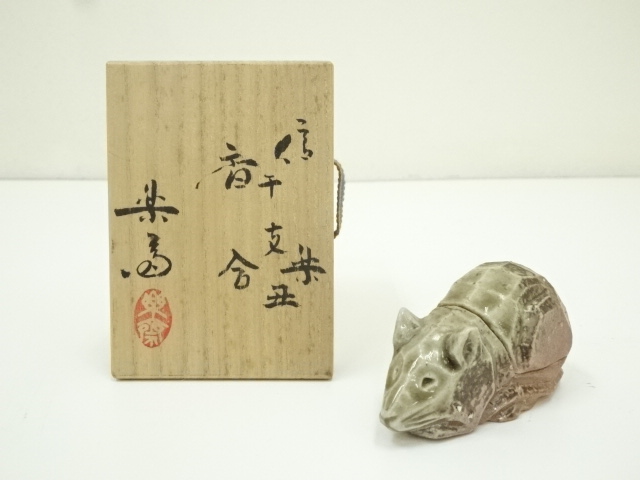 信楽
干支丑
香合
楽斎